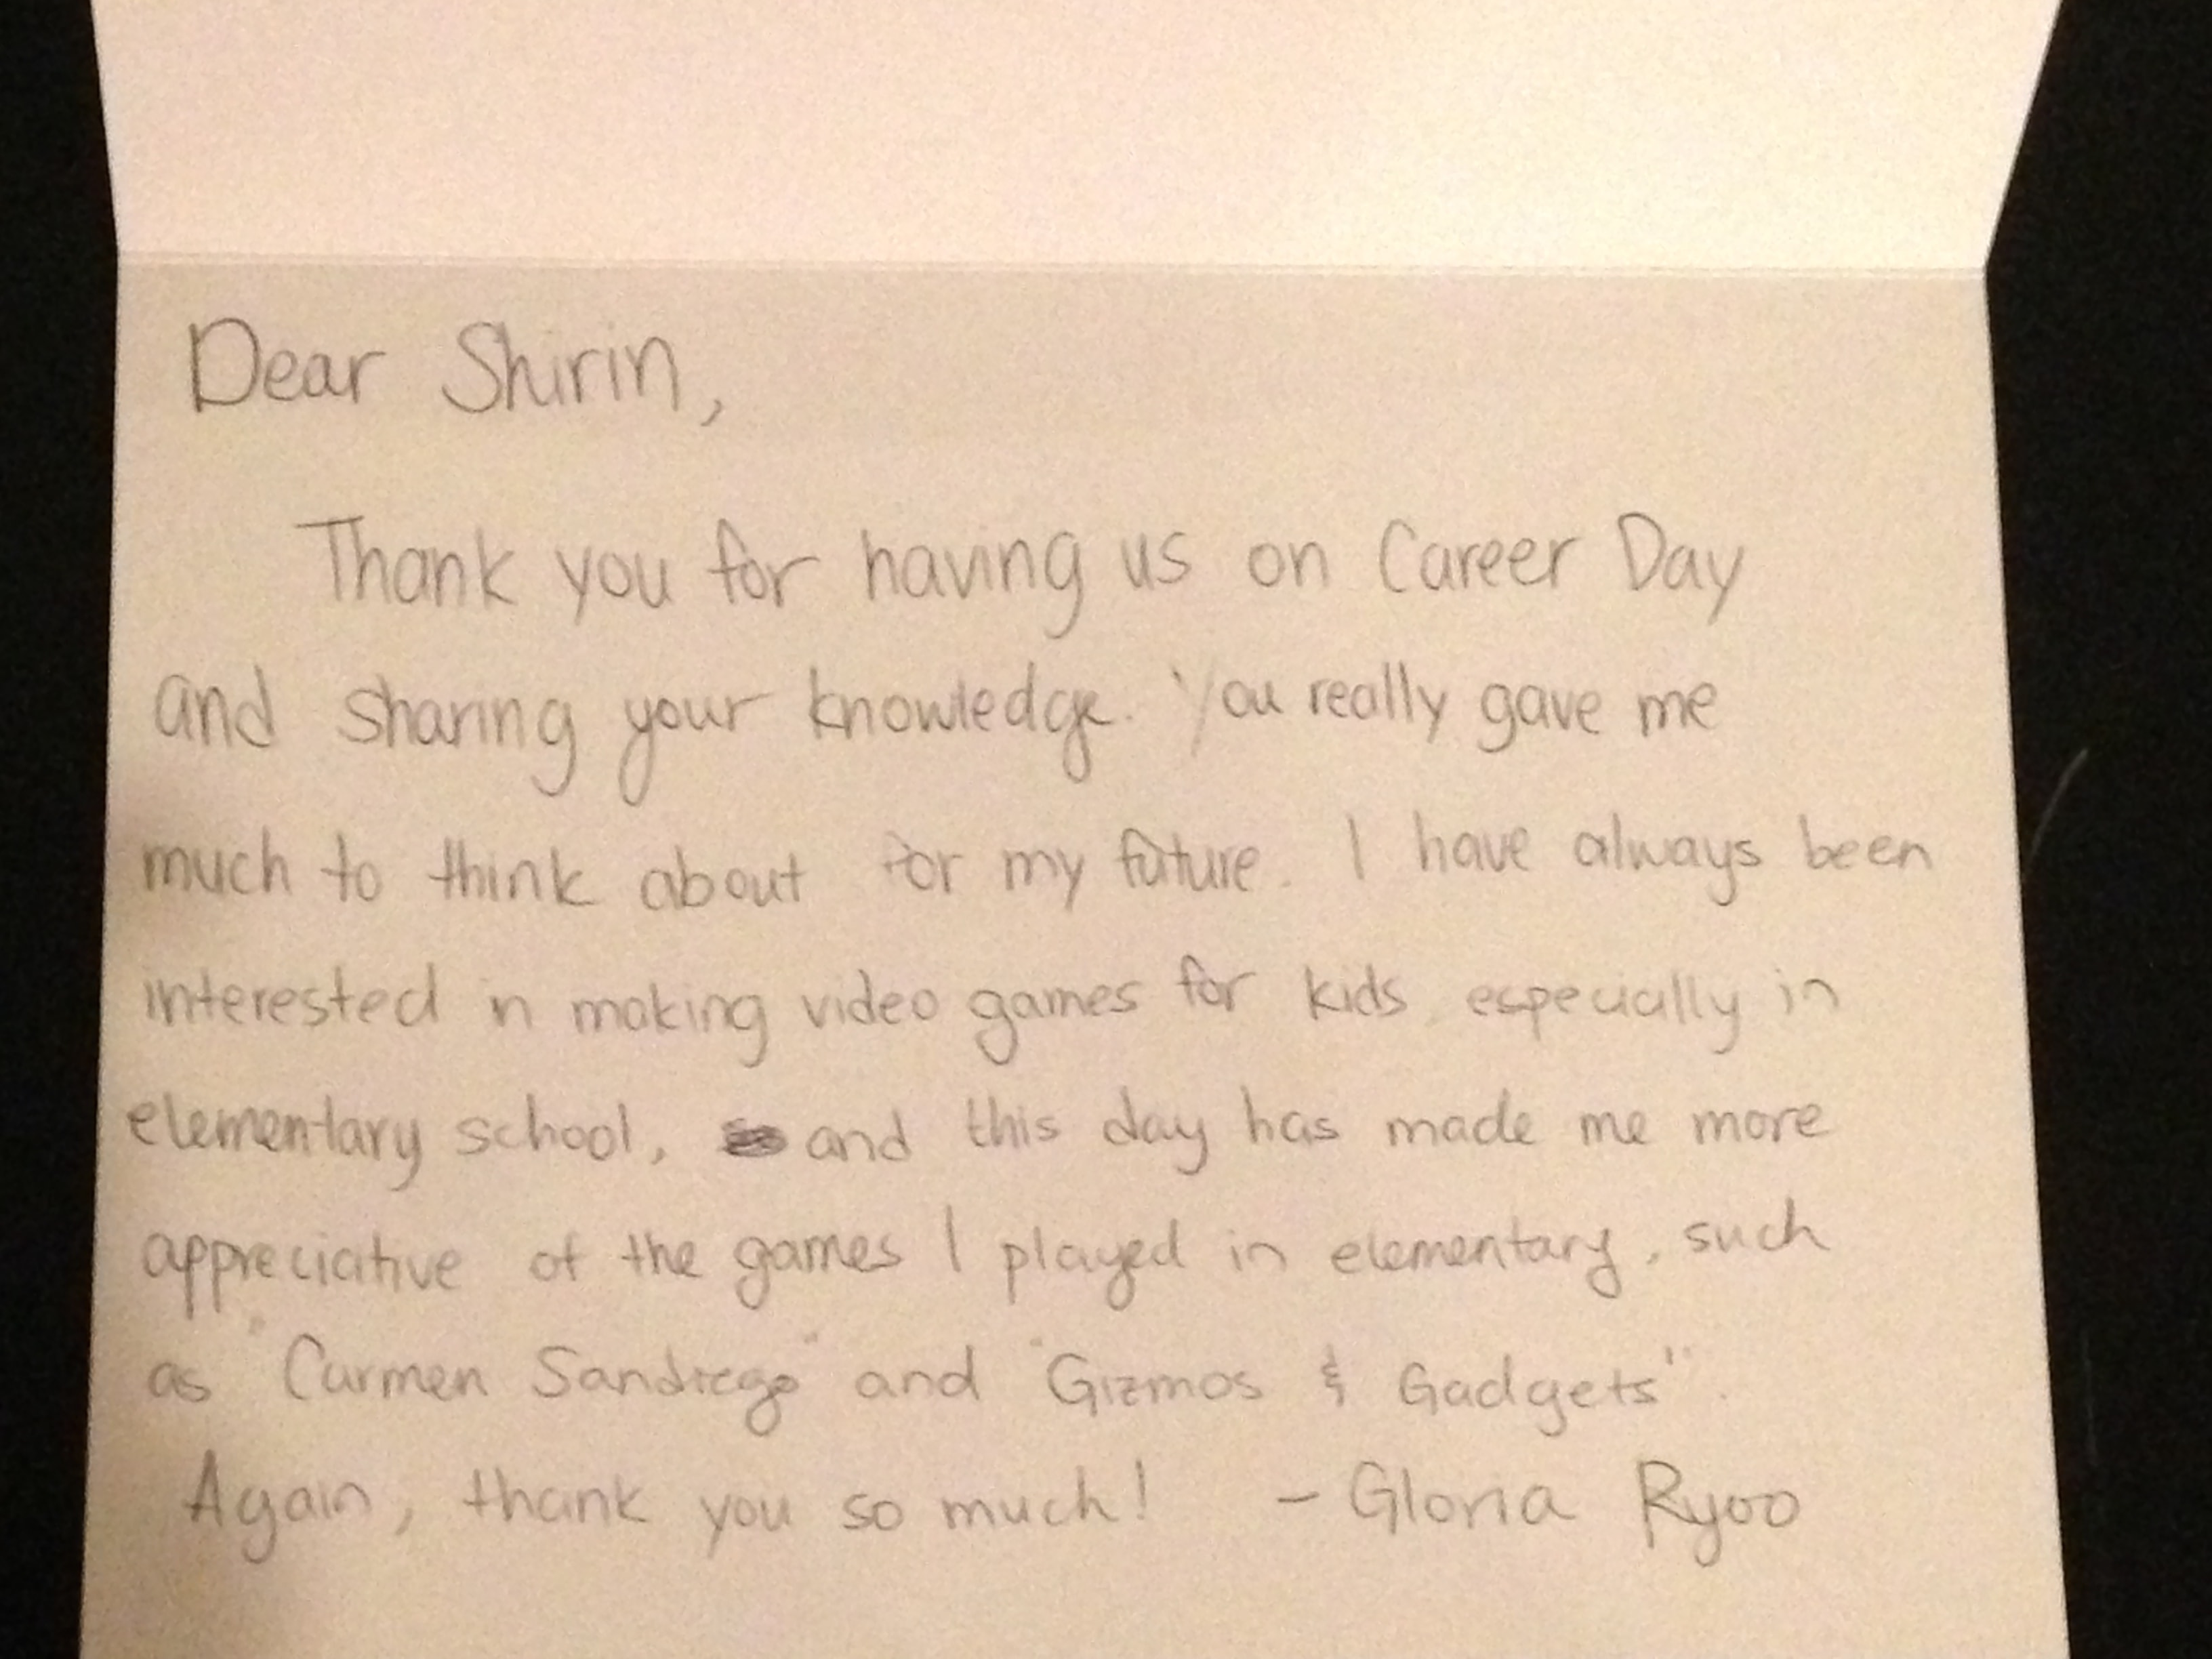 Dear Shirin,
Thank you for having us on Career Day
and sharing your knowledge. You really gave me
much to think about for my future. I have always been
interested in making video games for kids, especially in
elementary school, and this day has made me more
appreciative of the games I played in elementary, such
as "Carmen Sandiego" and "Gizmos & Gadgets".
Again, thank you so much! - Gloria Ryoo